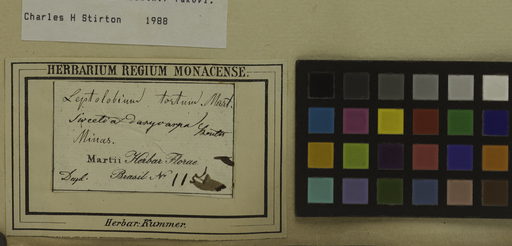 Charles H Stirton 1988
HERBARIUM REGIUM MONACENSE.
Leptolobium tortum Mart.
Sweetia dasycarpa Benth
Minas.
Martii Herbar. Florae
Brasil No 115
Herbar. Kummer.